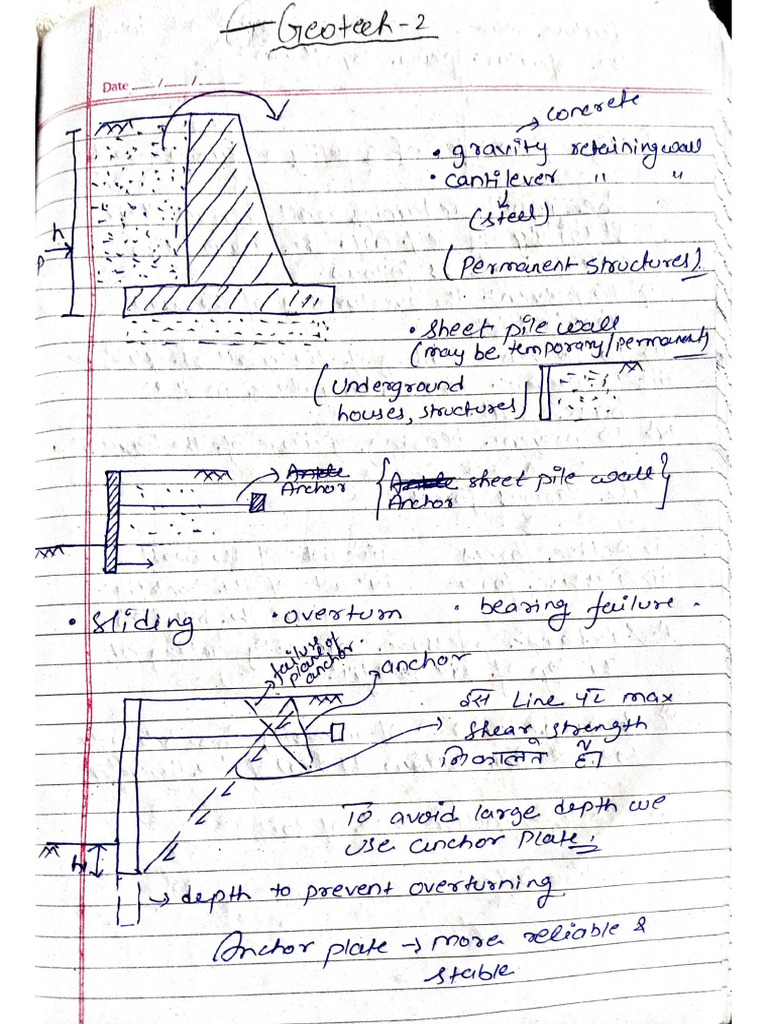 Geotech-2
Date __/__/__
concrete
• gravity retaining wall
• cantilever " "
(steel)
(Permanent structures)
h
P
• sheet pile wall
(may be temporary/permanent)
(Underground
houses, structures)
Anchor
{ sheet pile wall }
Anchor
• Sliding • overturn • bearing failure.
failure of
plane of
anchor.
anchor
इस Line पर max
shear strength
निकालते हैं।
To avoid large depth we
use anchor plate.
H
→ depth to prevent overturning
Anchor plate → more reliable &
stable